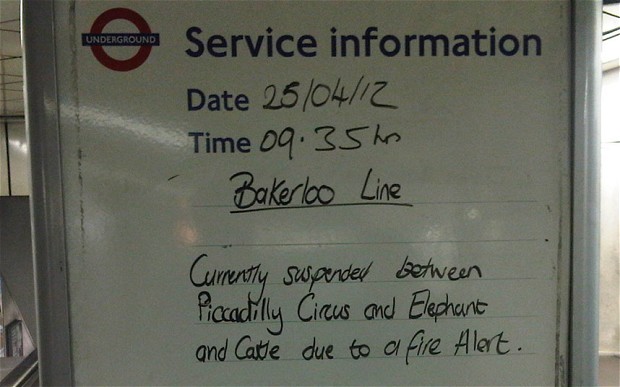 UNDERGROUND
Service information
Date 25/04/12
Time 09.35hrs
Bakerloo Line
Currently suspended between
Piccadilly Circus and Elephant
and Castle due to a fire Alert.